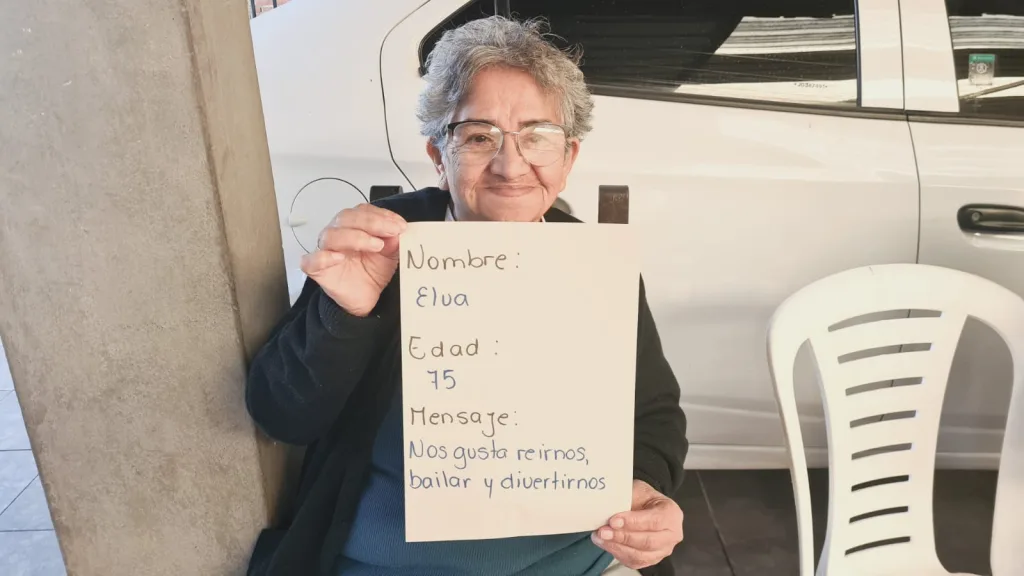 Nombre:
Elva
Edad:
75
Mensaje:
Nos gusta reirnos,
bailar y divertirnos